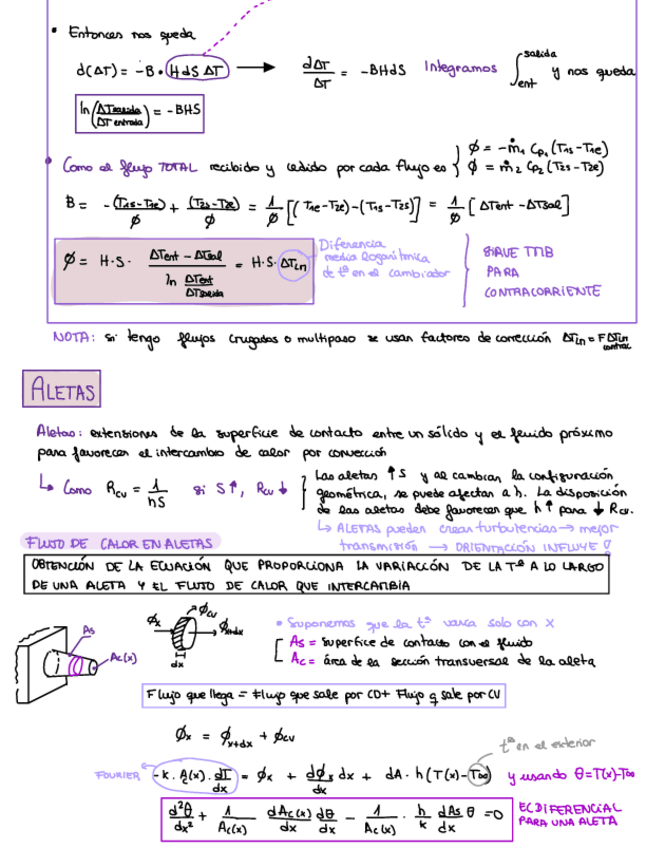 • Entonces nos queda
d(ΔT) = -B · (H dS ΔT) ⟶ dΔT/ΔT = -BHdS Integramos ∫ent^salida y nos queda
ln(ΔTsalida/ΔTentrada) = -BHS
• Como el flujo TOTAL recibido y cedido por cada flujo es { ϕ = -ṁ₁ Cp₁ (T1s-T1e)
ϕ = ṁ₂ Cp₂ (T2s-T2e)
B = -(T1s-T1e)/ϕ + (T2s-T2e)/ϕ = 1/ϕ [(T1e-T2e)-(T1s-T2s)] = 1/ϕ [ΔTent-ΔTsal]
ϕ = H·S· (ΔTent - ΔTsal)/(ln ΔTent/ΔTsalida) = H·S·ΔTln
Diferencia
media logarítmica
de tª en el cambiador
SIRVE TMB
PARA
CONTRACORRIENTE
NOTA: si tengo flujos cruzados o multipaso se usan factores de corrección ΔTln = F ΔTln contrac
ALETAS
Aletas: extensiones de la superficie de contacto entre un sólido y el fluido próximo
para favorecer el intercambio de calor por convección
↳ Como Rcv = 1/hS si S↑, Rcv↓
Las aletas ↑S y al cambiar la configuración
geométrica, se puede afectar a h. La disposición
de las aletas debe favorecer que h↑ para ↓ Rcv.
↳ ALETAS pueden crear turbulencias → mejor
transmisión → ORIENTACIÓN INFLUYE!
FLUJO DE CALOR EN ALETAS
OBTENCIÓN DE LA ECUACIÓN QUE PROPORCIONA LA VARIACIÓN DE LA Tª A LO LARGO
DE UNA ALETA Y EL FLUJO DE CALOR QUE INTERCAMBIA
As
Ac(x)
ϕx
ϕcv
ϕx+dx
dx
• Suponemos que la tª varía solo con x
As = superficie de contacto con el fluido
Ac = área de la sección transversal de la aleta
Flujo que llega = Flujo que sale por CD + Flujo q sale por CV
ϕx = ϕx+dx + ϕcv
tª en el exterior
FOURIER ← -k · Ac(x) · dT/dx = ϕx + dϕx/dx dx + dA · h (T(x)-T∞) y usando θ=T(x)-T∞
d²θ/dx² + 1/Ac(x) dAc(x)/dx dθ/dx - 1/Ac(x) · h/k dAs/dx θ = 0
EC DIFERENCIAL
PARA UNA ALETA